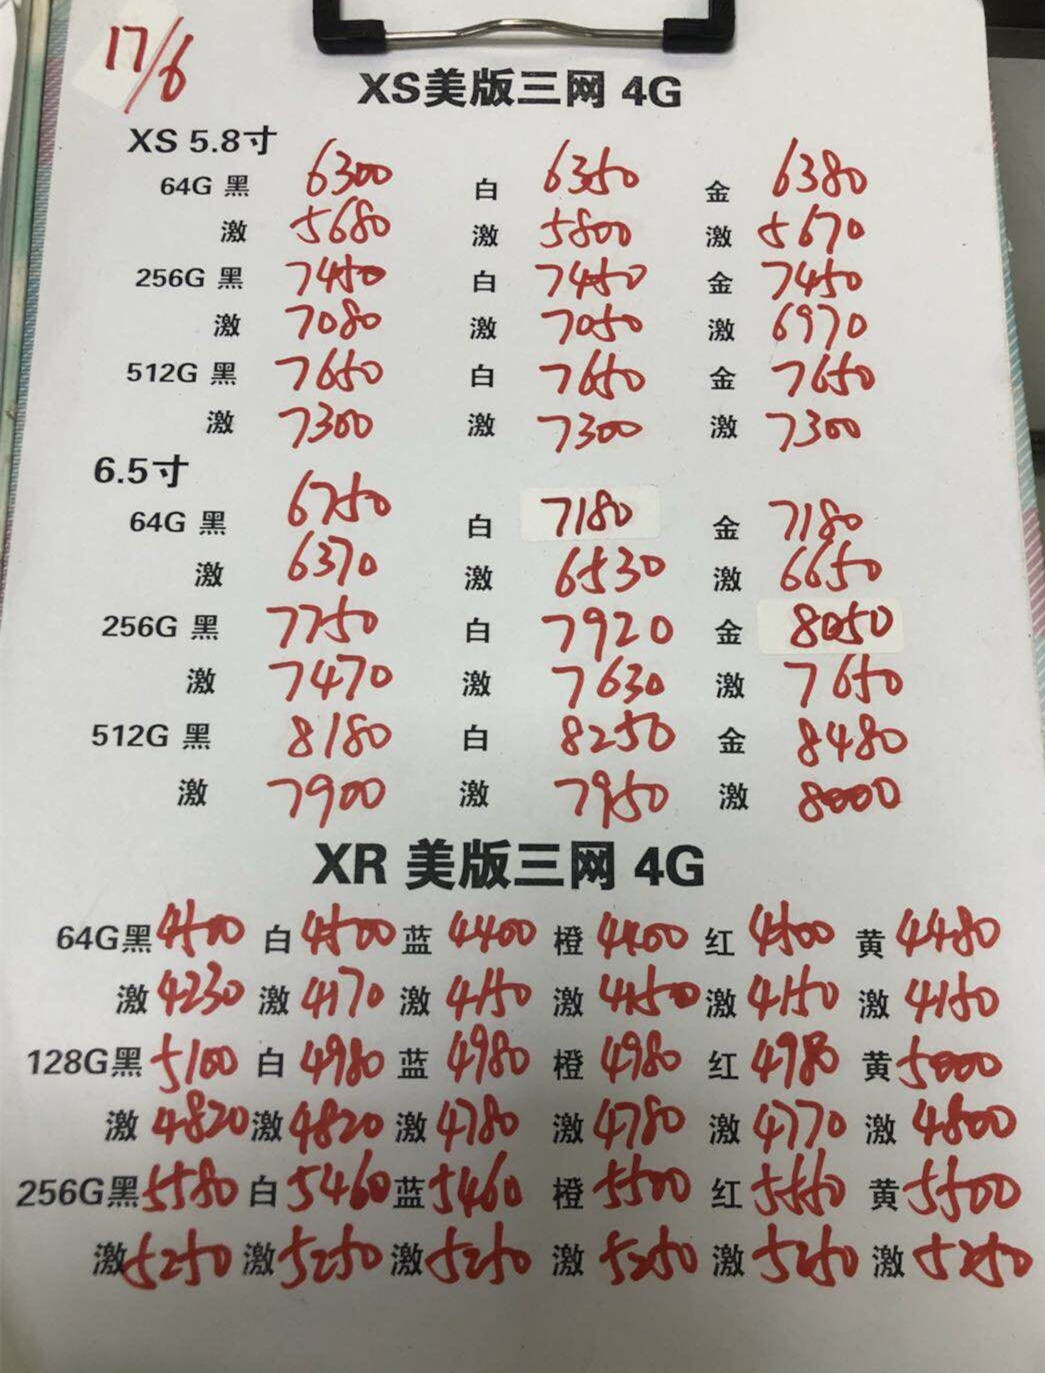 17/6
XS美版三网 4G
XS 5.8寸
64G 黑 6300 白 6350 金 6380
激 5680 激 5800 激 5670
256G 黑 7450 白 7450 金 7450
激 7080 激 7050 激 6970
512G 黑 7650 白 7650 金 7650
激 7300 激 7300 激 7300
6.5寸
64G 黑 6750 白 7180 金 7180
激 6370 激 6530 激 6650
256G 黑 7750 白 7920 金 8050
激 7470 激 7630 激 7650
512G 黑 8180 白 8250 金 8480
激 7900 激 7950 激 8000
XR 美版三网 4G
64G黑 4500 白 4500 蓝 4400 橙 4400 红 4500 黄 4480
激 4230 激 4170 激 4150 激 4150 激 4150 激 4150
128G黑 5100 白 4980 蓝 4980 橙 4980 红 4980 黄 5000
激 4820 激 4820 激 4780 激 4780 激 4770 激 4800
256G黑 5580 白 5460 蓝 5460 橙 5500 红 5550 黄 5500
激 5250 激 5250 激 5250 激 5250 激 5250 激 5250